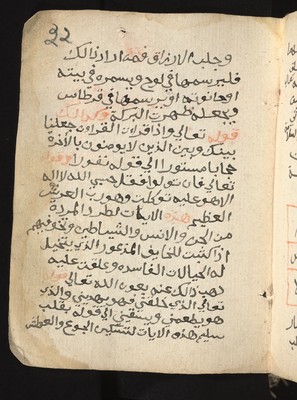 32
وجلب الارزاق فمن اراد ذالك
فليرسمها في لوح ويسمره في بيته
او حانوته او يرسمها في قرطاس
ويجعله ظهرت البركة وكذالك
قوله تعالى واذا قرات القراءن جعلنا
بينك وبين الذين لا يومنون بالاخرة
حجابا مستورا الى قوله نفورا وقوله
تعالى فان تولوا فقل حسبي الله لا اله
الا هو عليه توكلت وهو رب العرش
العظيم هذه الايات لطرد المردة
من الجن والانس والشياطين وتخوفهم
اذا كتبت للخايف المذعور الذي يتخيل
له الخيالات الفاسدة وعلقت عليه
ذهب ذالك عنه بعون الله تعالى قوله
تعالى الذي خلقني فهو يهدين والذي
هو يطعمني ويسقيني الى قوله بقلب
سليم هذه الايات لتسكين الجوع والعطش